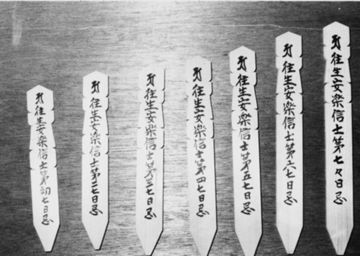 往生安樂信士第初七日忌
往生安樂信士第二七日忌
往生安樂信士第三七日忌
往生安樂信士第四七日忌
往生安樂信士第五七日忌
往生安樂信士第六七日忌
往生安樂信士第七々日忌